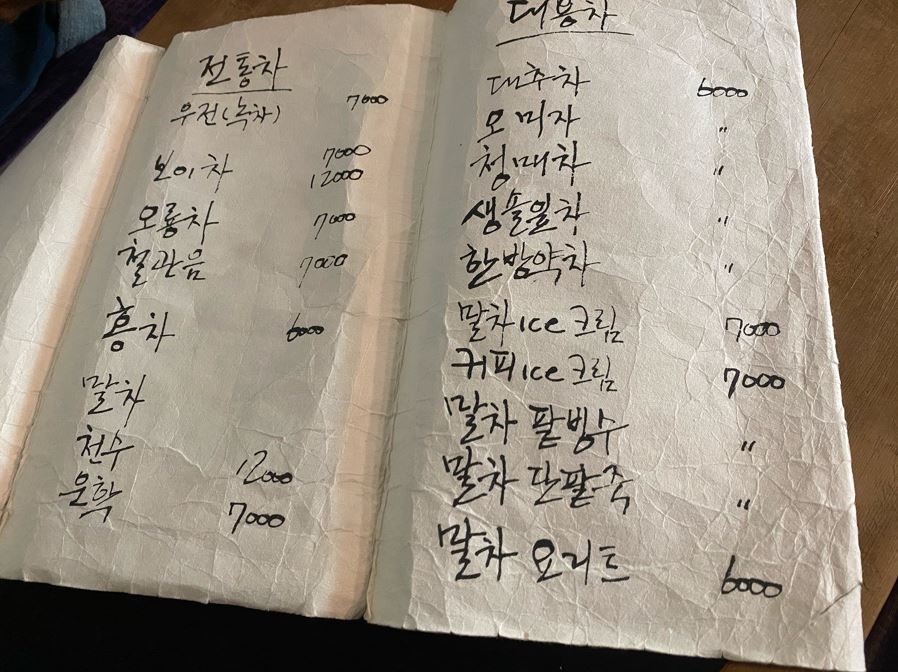 전통차
우전(녹차) 7000
보이차 7000
12000
오룡차 7000
철관음 7000
홍차 6000
말차
천수 12000
운학 7000
대용차
대추차 6000
오미자 〃
청매차 〃
생솔잎차 〃
한방약차 〃
말차 ice 크림 7000
커피 ice 크림 7000
말차 팥빙수 〃
말차 단팥죽 〃
말차 요리트 6000